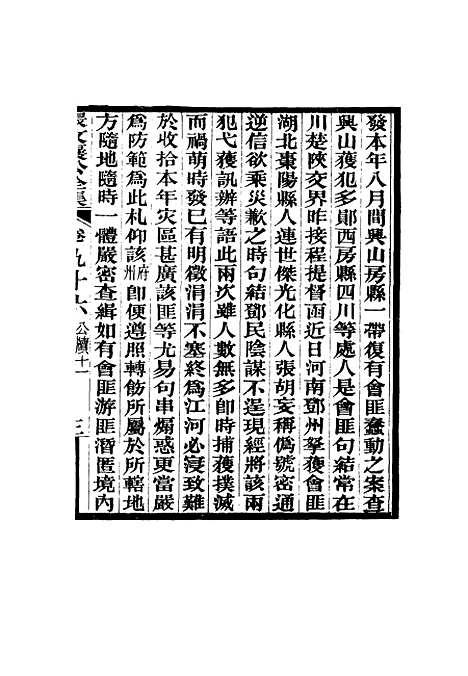 發本年八月間興山房縣一帶復有會匪蠢動之案查
興山獲犯多鄖西房縣四川等處人是會匪句結常在
川楚陝交界昨接程提督函近日河南鄧州拏獲會匪
湖北棗陽縣人連世傑光化縣人張胡妄稱僞號密通
逆信欲乘災歉之時句結鄧民陰謀不逞現經將該兩
犯弋獲訊辦等語此兩次雖人數無多卽時捕獲撲滅
而禍萌時發已有明徵涓涓不塞終爲江河必寖致難
於收拾本年灾區甚廣該匪等尤易句串煽惑更當嚴
爲防範爲此札仰該府州卽便遵照轉飭所屬於所轄地
方隨地隨時一體嚴密查緝如有會匪游匪潛匿境內
張文襄公全集 卷九十六 公牘十一 三